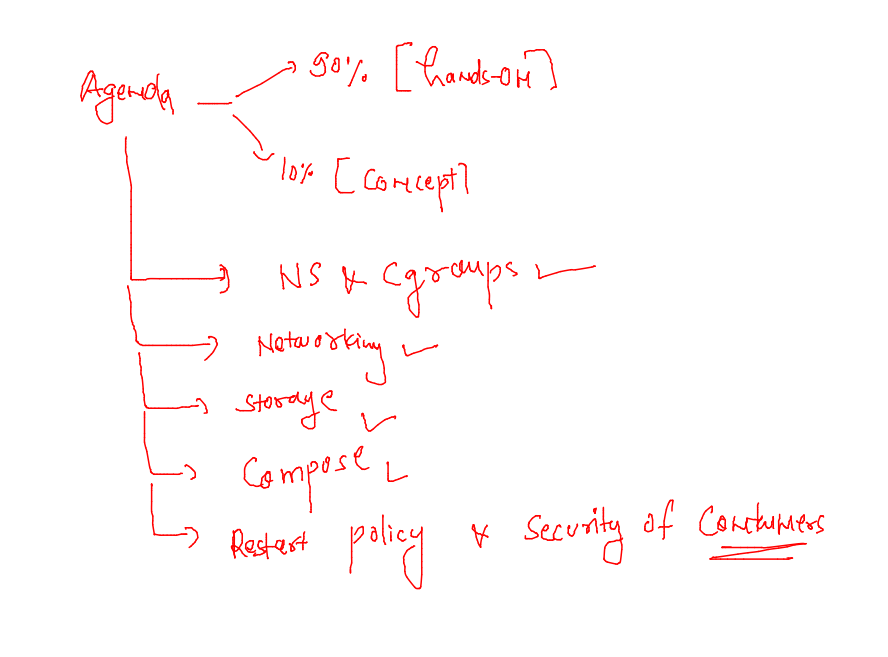 Agenda
90% [hands-on]
10% [concept]
NS & Cgroups
Networking
Storage
Compose
Restart policy & Security of Containers